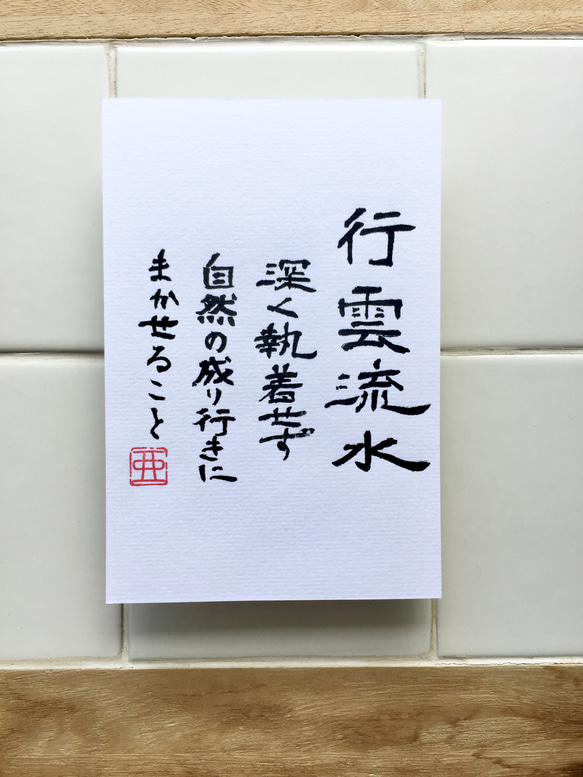 行雲流水
深く執着せず
自然の成り行きに
まかせること
亜